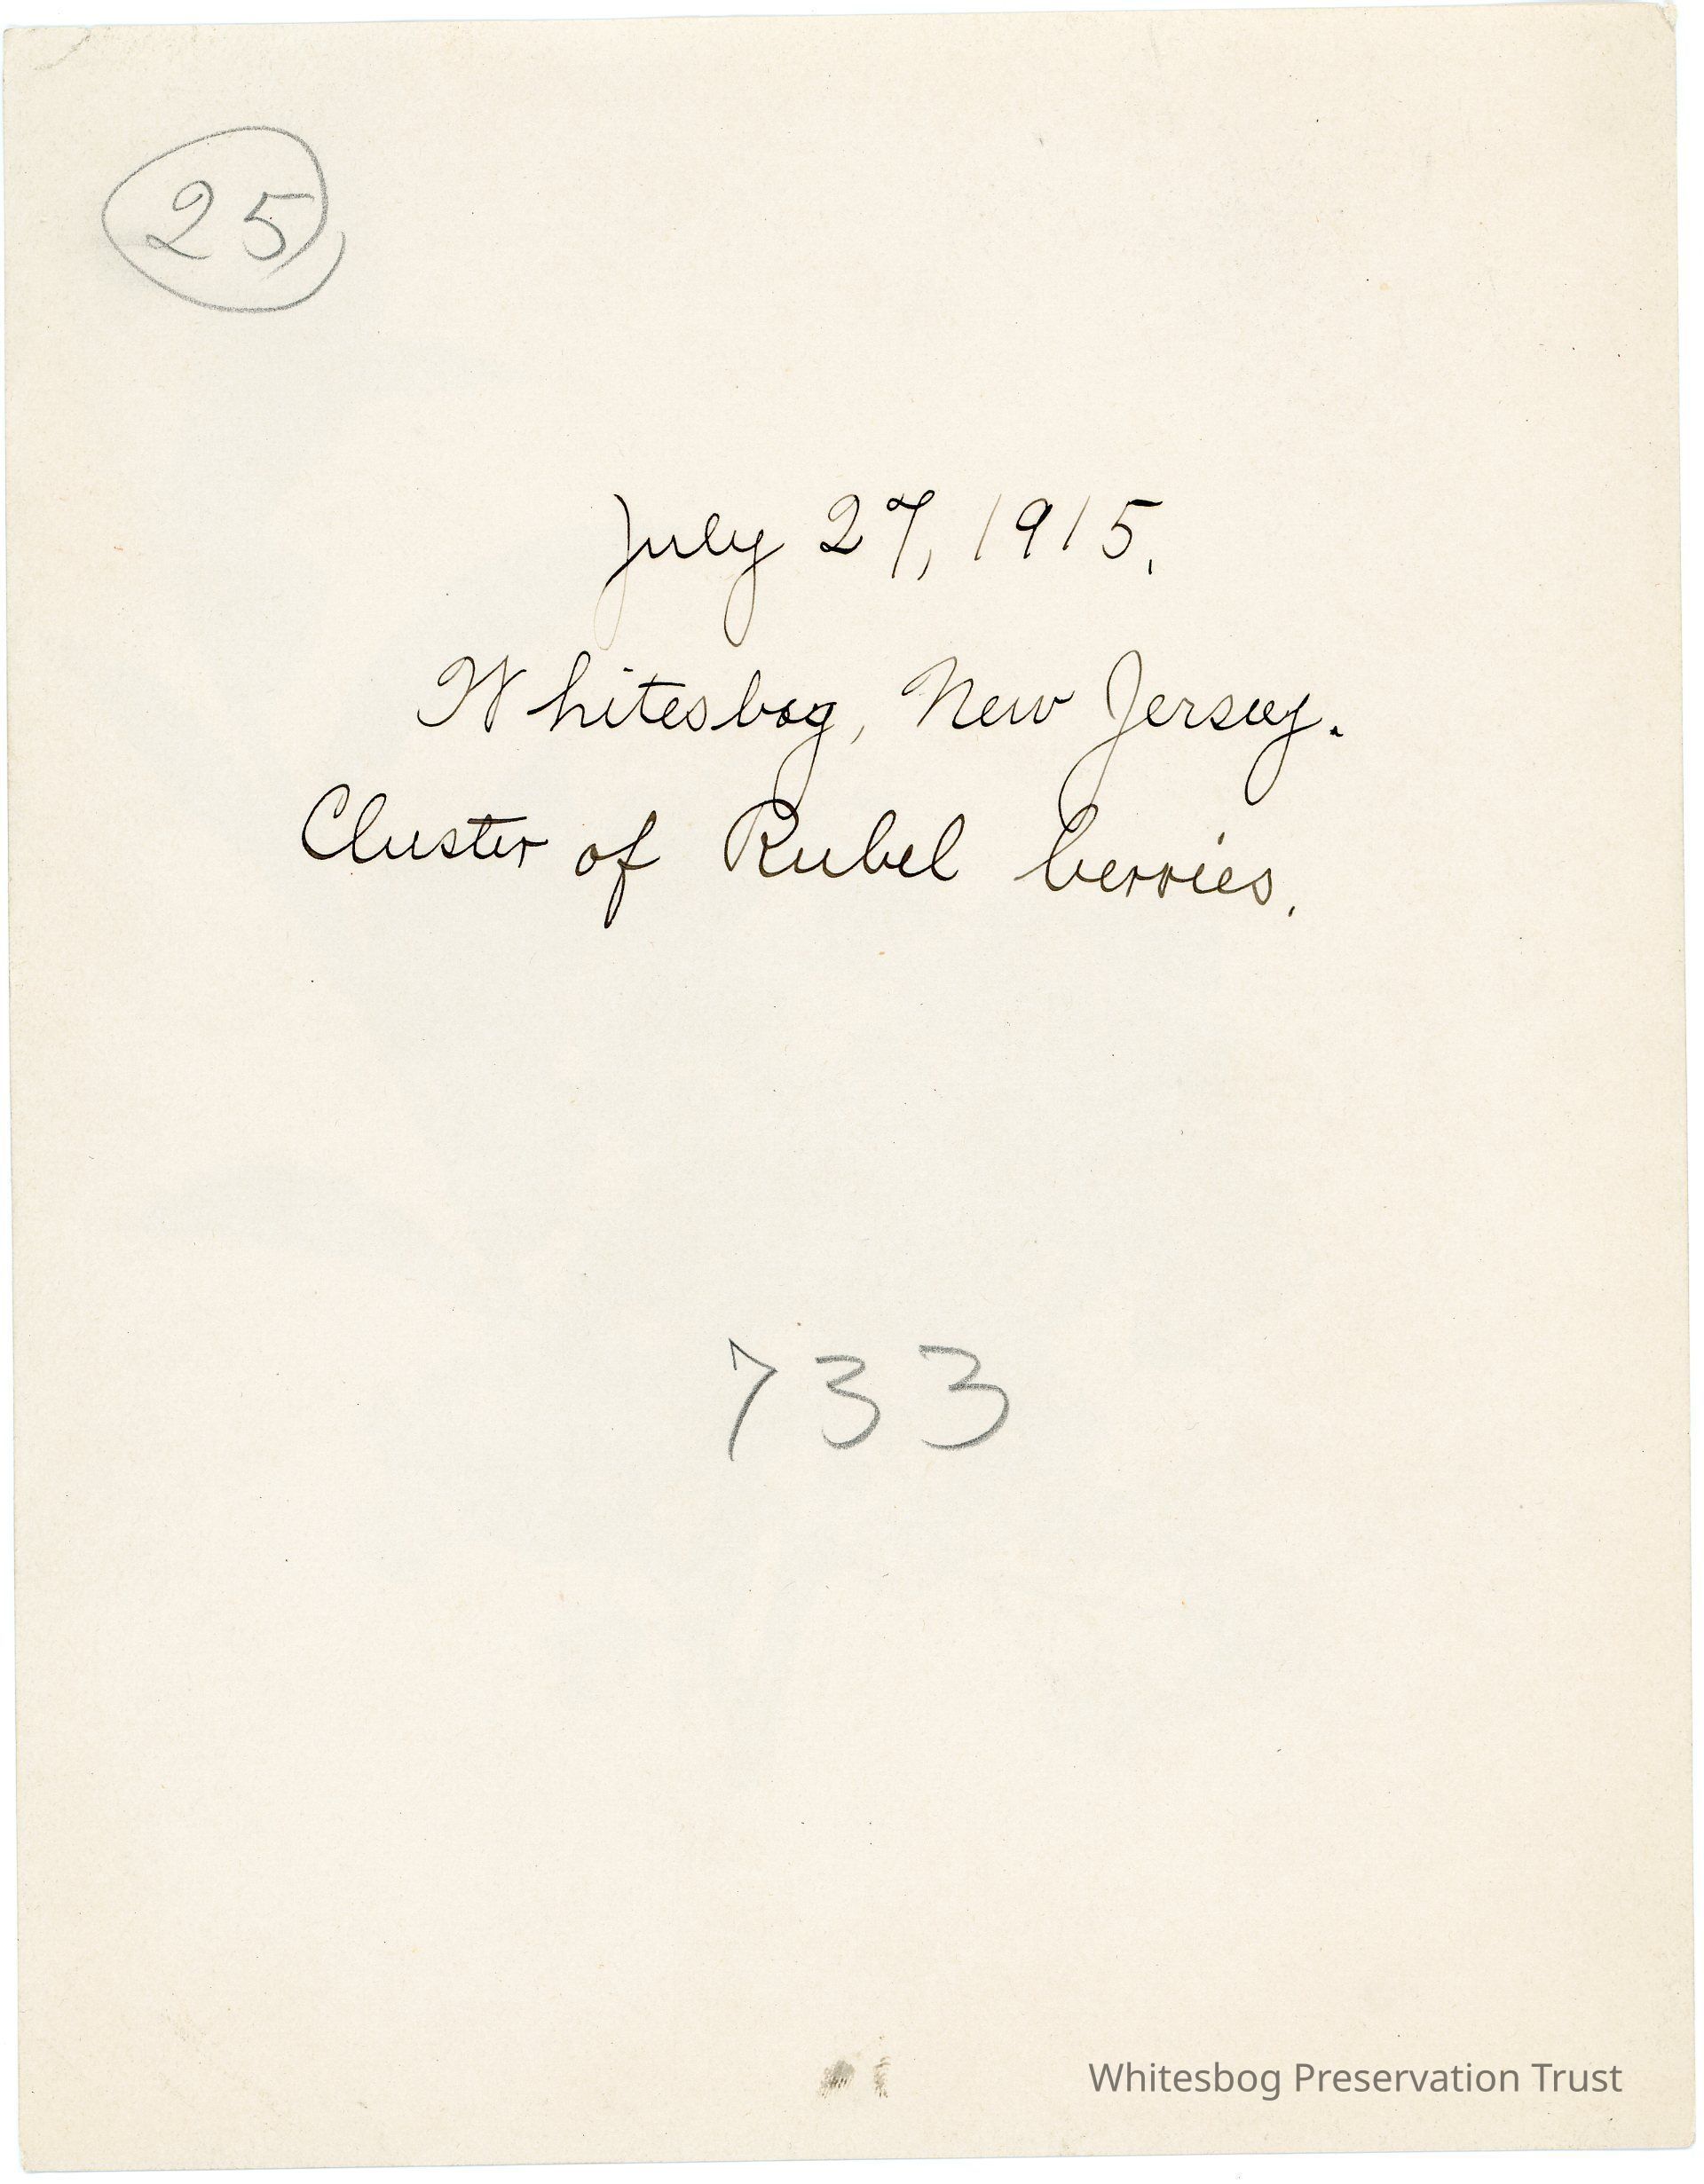 25
July 27, 1915.
Whitesbog, New Jersey.
Cluster of Rubel berries.
733
Whitesbog Preservation Trust